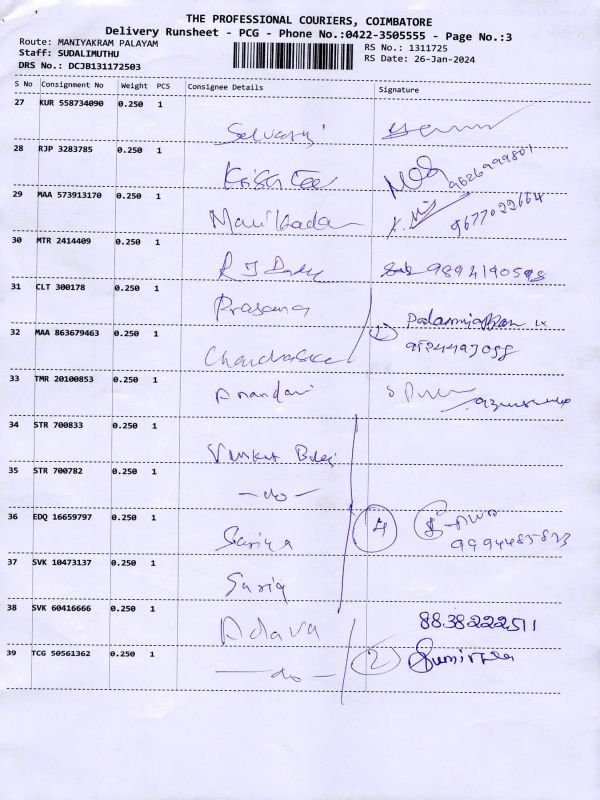 THE PROFESSIONAL COURIERS, COIMBATORE
Delivery Runsheet - PCG - Phone No.:0422-3505555 - Page No.:3
Route: MANIYAKRAM PALAYAM
Staff: SUDALIMUTHU
DRS No.: DCJB131172503
RS No.: 1311725
RS Date: 26-Jan-2024
S No Consignment No Weight PCS Consignee Details Signature
27 KUR 558734090 0.250 1 Selvaraj
28 RJP 3283785 0.250 1 9626999801
29 MAA 573913170 0.250 1 Manikandan 9677022664
30 MTR 2414409 0.250 1
31 CLT 300178 0.250 1 Prasana
32 MAA 863679463 0.250 1
33 TMR 20100853 0.250 1 Anandan
34 STR 700833 0.250 1 Venkat Balaji
35 STR 700782 0.250 1 -do-
36 EDQ 16659797 0.250 1 4
37 SVK 10473137 0.250 1
38 SVK 60416666 0.250 1 8838222511
39 TCG 50561362 0.250 1 -do- 2